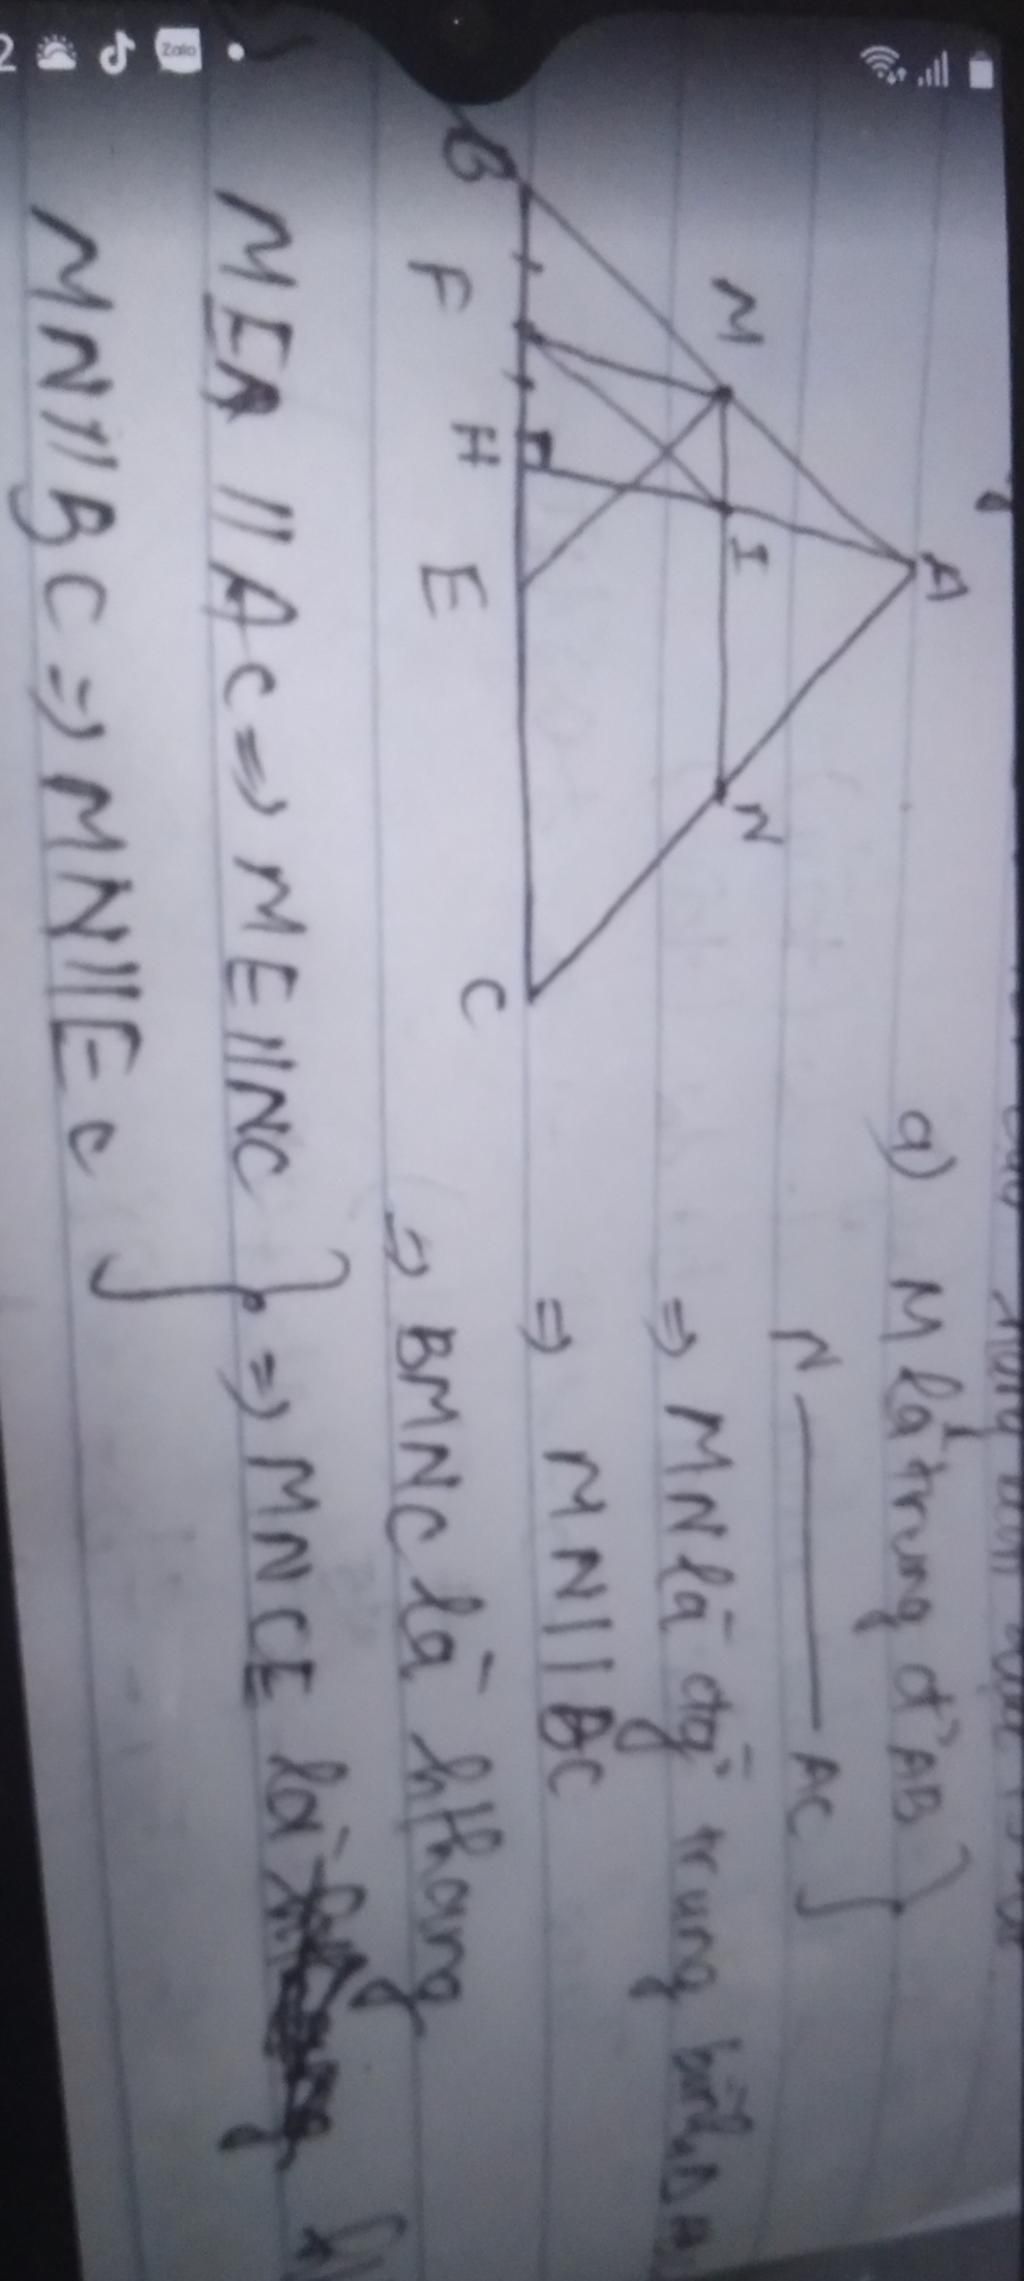 Zalo
A
M
I
N
B
F
H
E
C
a) M là trung đ' AB
N ——— AC
=> MN là đg̀ trung bình Δ
=> MN // BC
=> BMNC là hthang
ME // AC => ME // NC
=> MNCE là
MN // BC => MN // EC